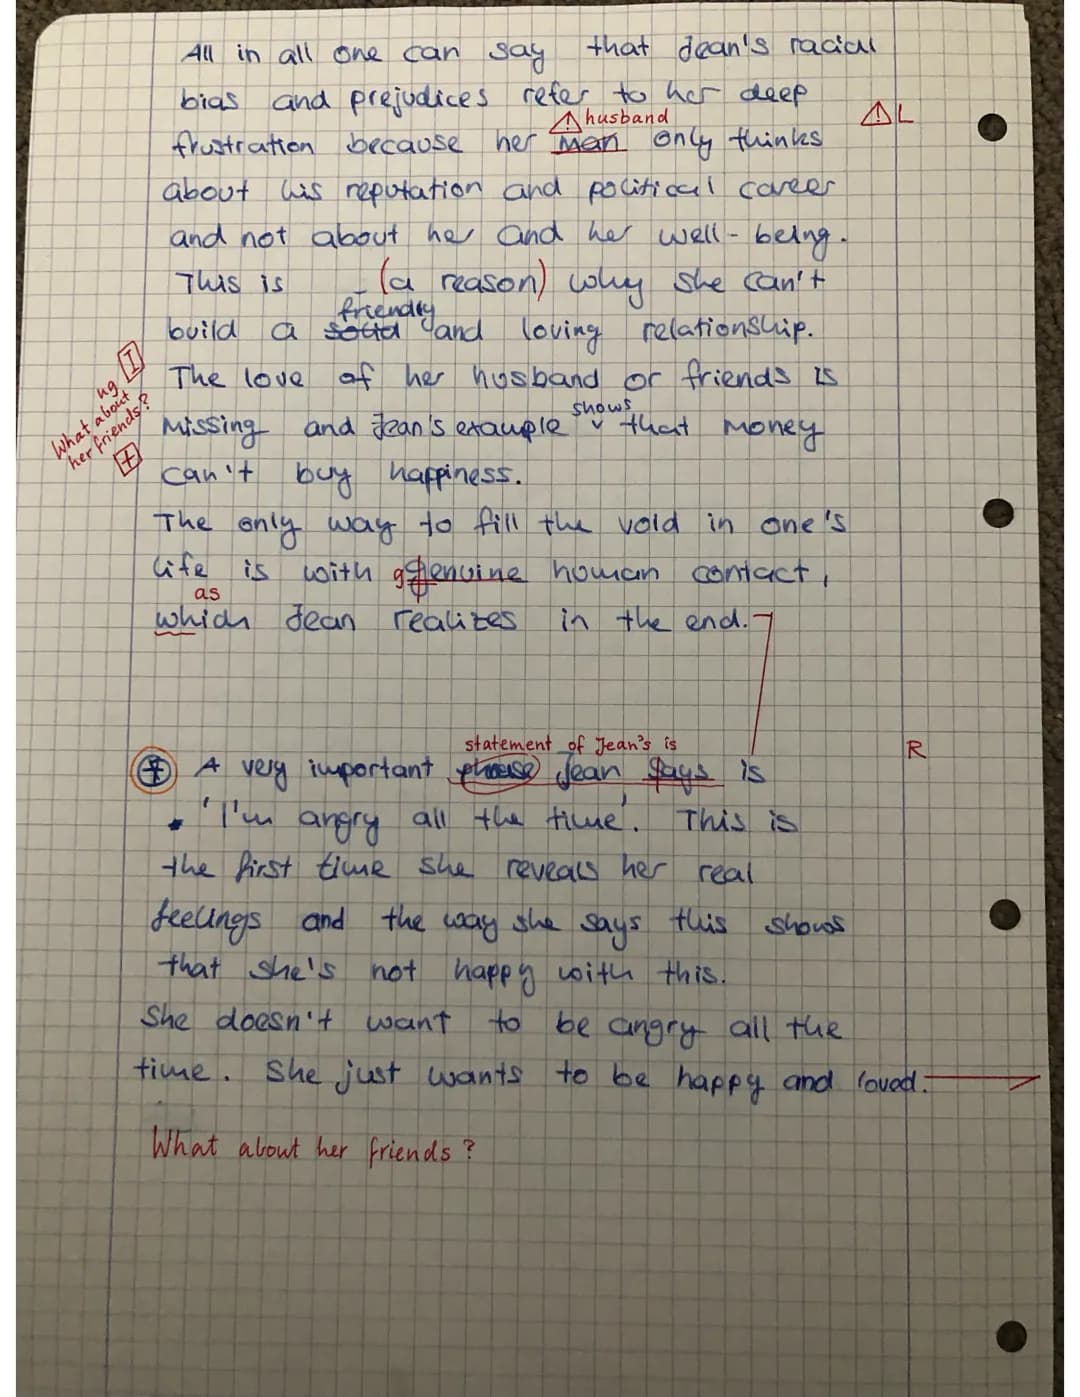 All in all one can say that Jean's racial
bias and prejudices refer to her deep
⚠ husband
⚠ L
frustration because her man only thinks
about his reputation and political career
and not about her and her well-being.
This is (a reason) why she can't
friendly
build a solid and loving relationship.
I
The love of her husband or friends is
ug
What about
her friends?
+
shows
missing and Jean's example ᵛ that money
can't buy happiness.
The only way to fill the void in one's
life is with genuine human contact,
as
which Jean realizes in the end.
statement of Jean's is
R
+ A very important phrase Jean says is
'I'm angry all the time'. This is
the first time she reveals her real
feelings and the way she says this shows
that she's not happy with this.
She doesn't want to be angry all the
time. She just wants to be happy and loved.
What about her friends?